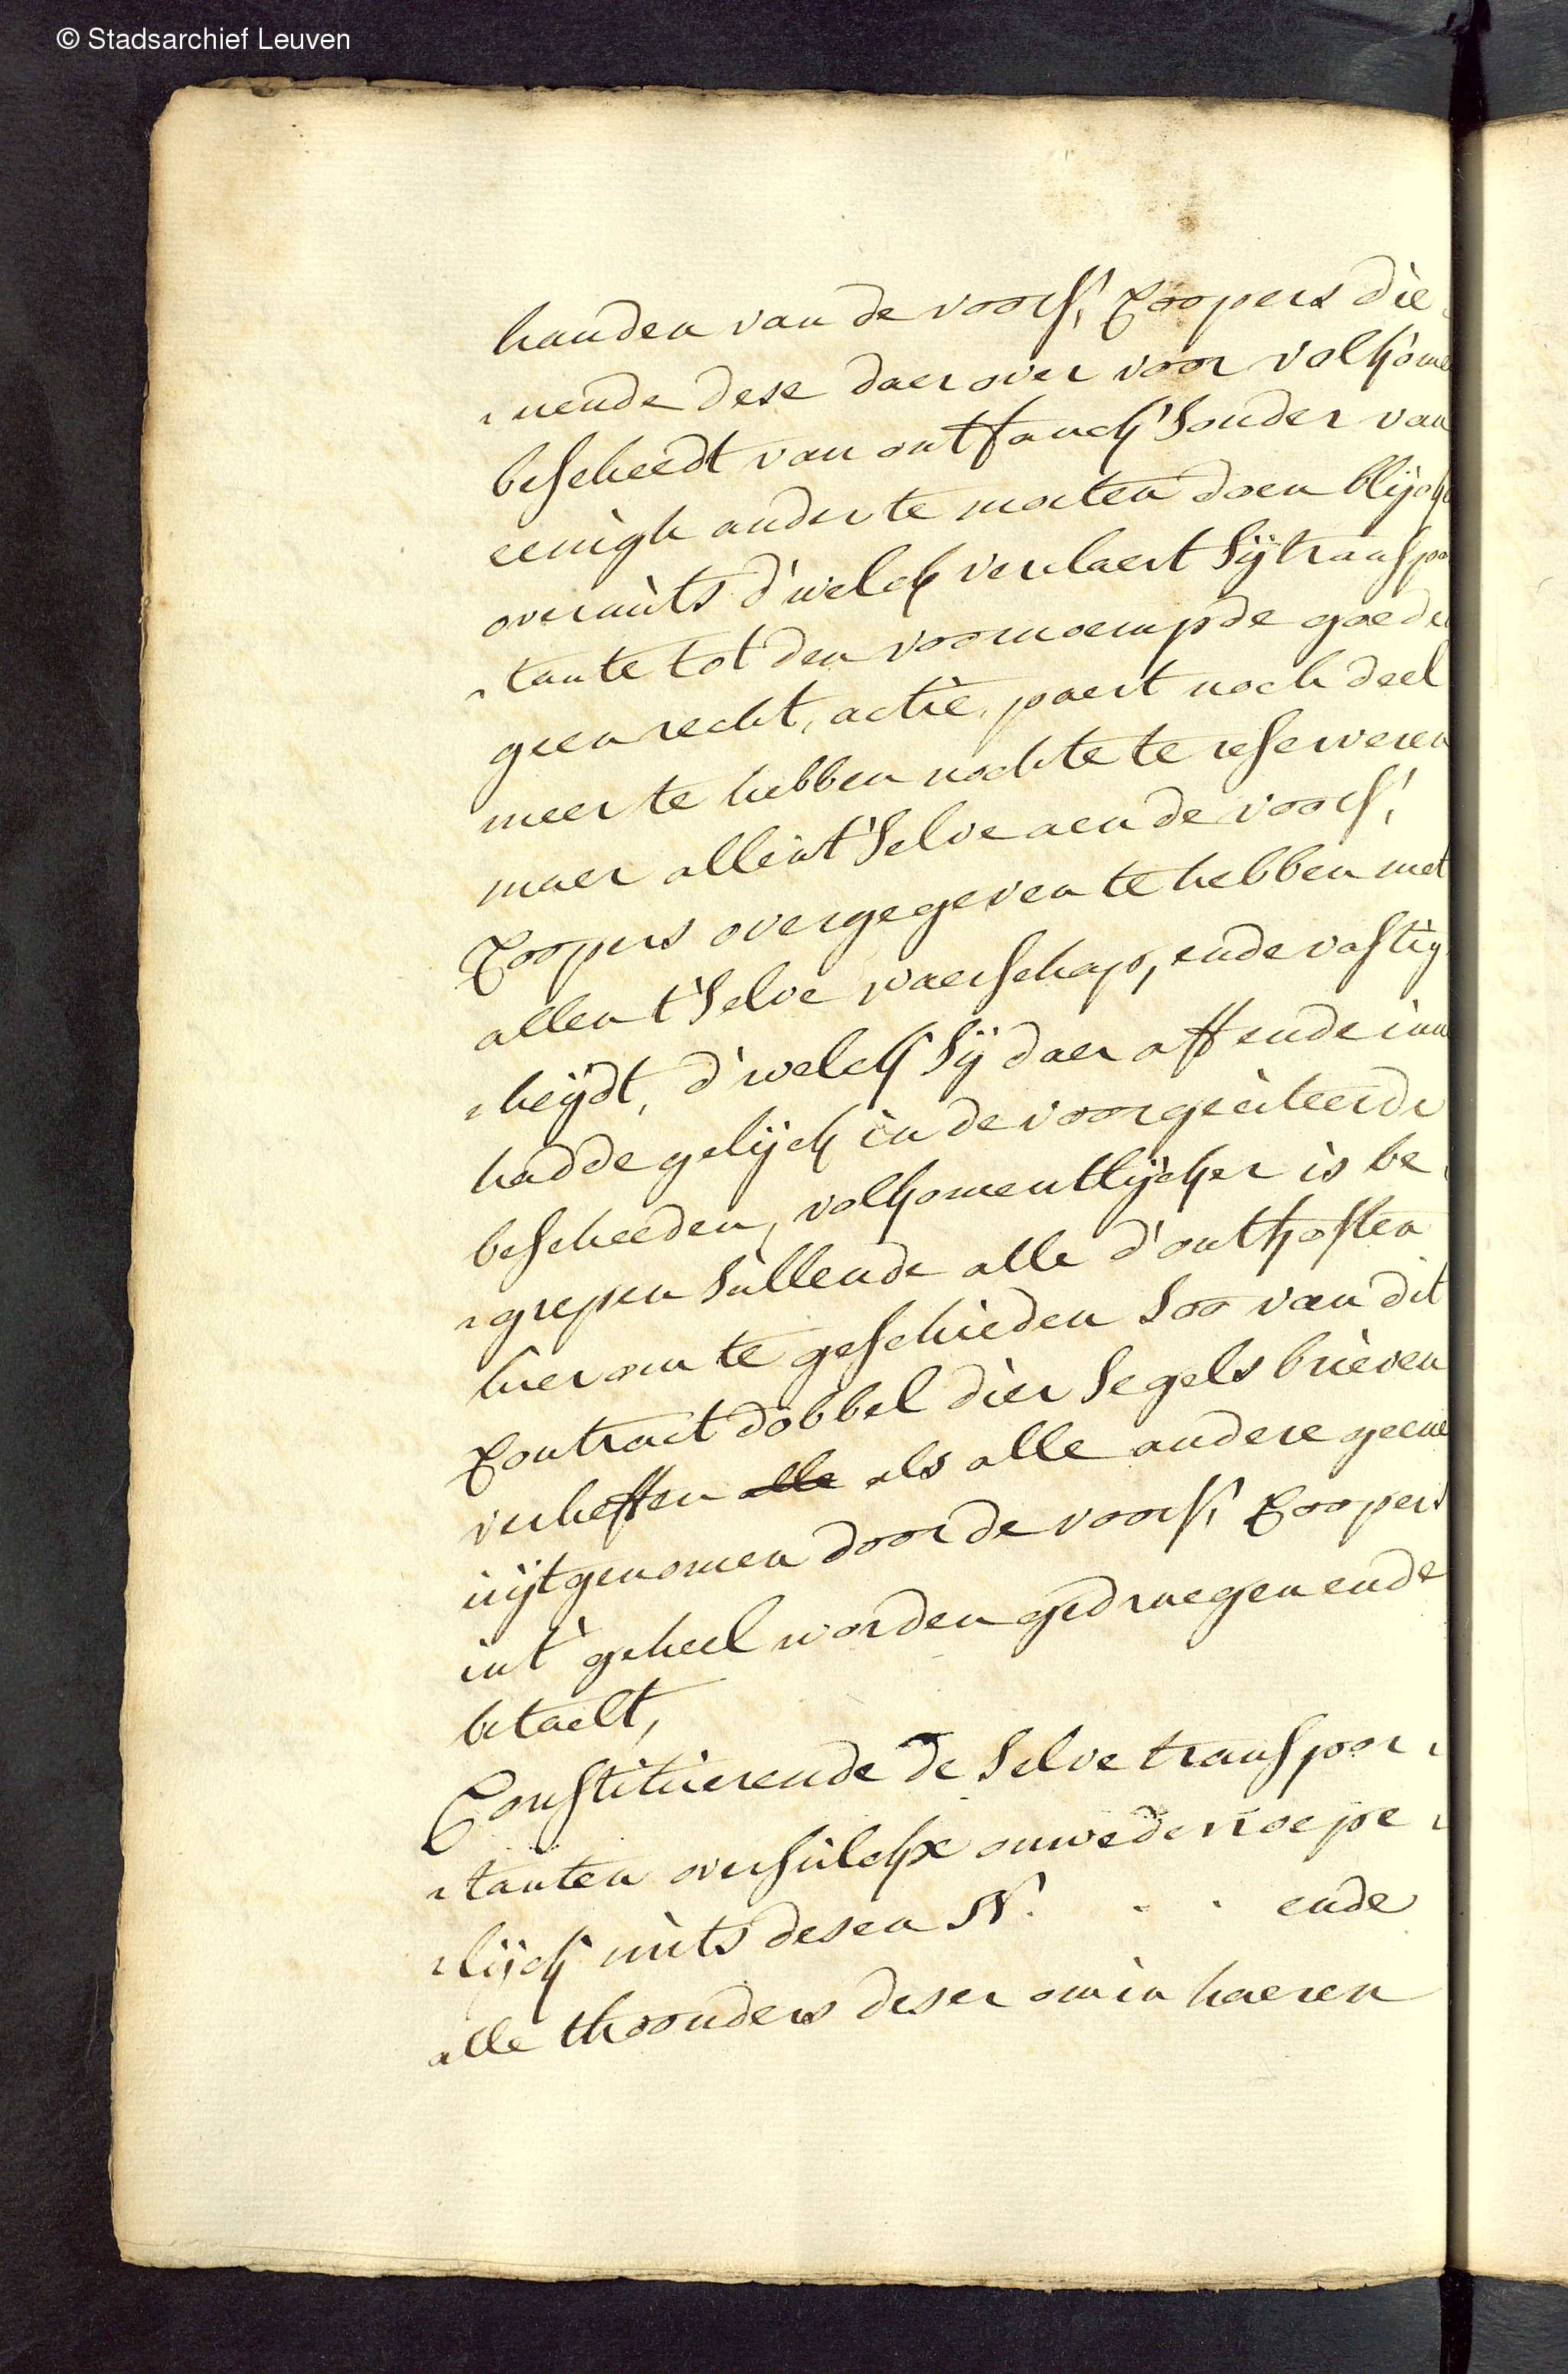 © Stadsarchief Leuven
handen van de voors: Coopers die-
-nende dese daer over voor volkome
bescheedt van ontfanck sonder van
eenigh ander te moeten doen blijck
overmits d'welck verclaert sij transpo
-tante tot den voornoempde goede
geen recht, actie, paert noch deel
meer te hebben nochte te reserveren
maer alle int' selve aen de voors:
Coopers overgegeven te hebben met
allen t'selve waerschap, ende vastig
-heijdt, d'welck sij daer aff ende inne
hadde gelijck in de voorgeciteerde
bescheeden, volkomentlijcker is be-
-grepen sullende alle d'onkosten
hierom te geschieden soo van dit
Contract dobbel dier segels brieven
verheffen alle als alle andere geene
uijtgenomen door de voors: Coopers
int' geheel worden gedraegen ende
betaelt,
Constituerende de selve transpor-
-tanten oversulckx onwederroepe-
-lijck mits desen N. . . ende
alle thoonders deser om in haeren